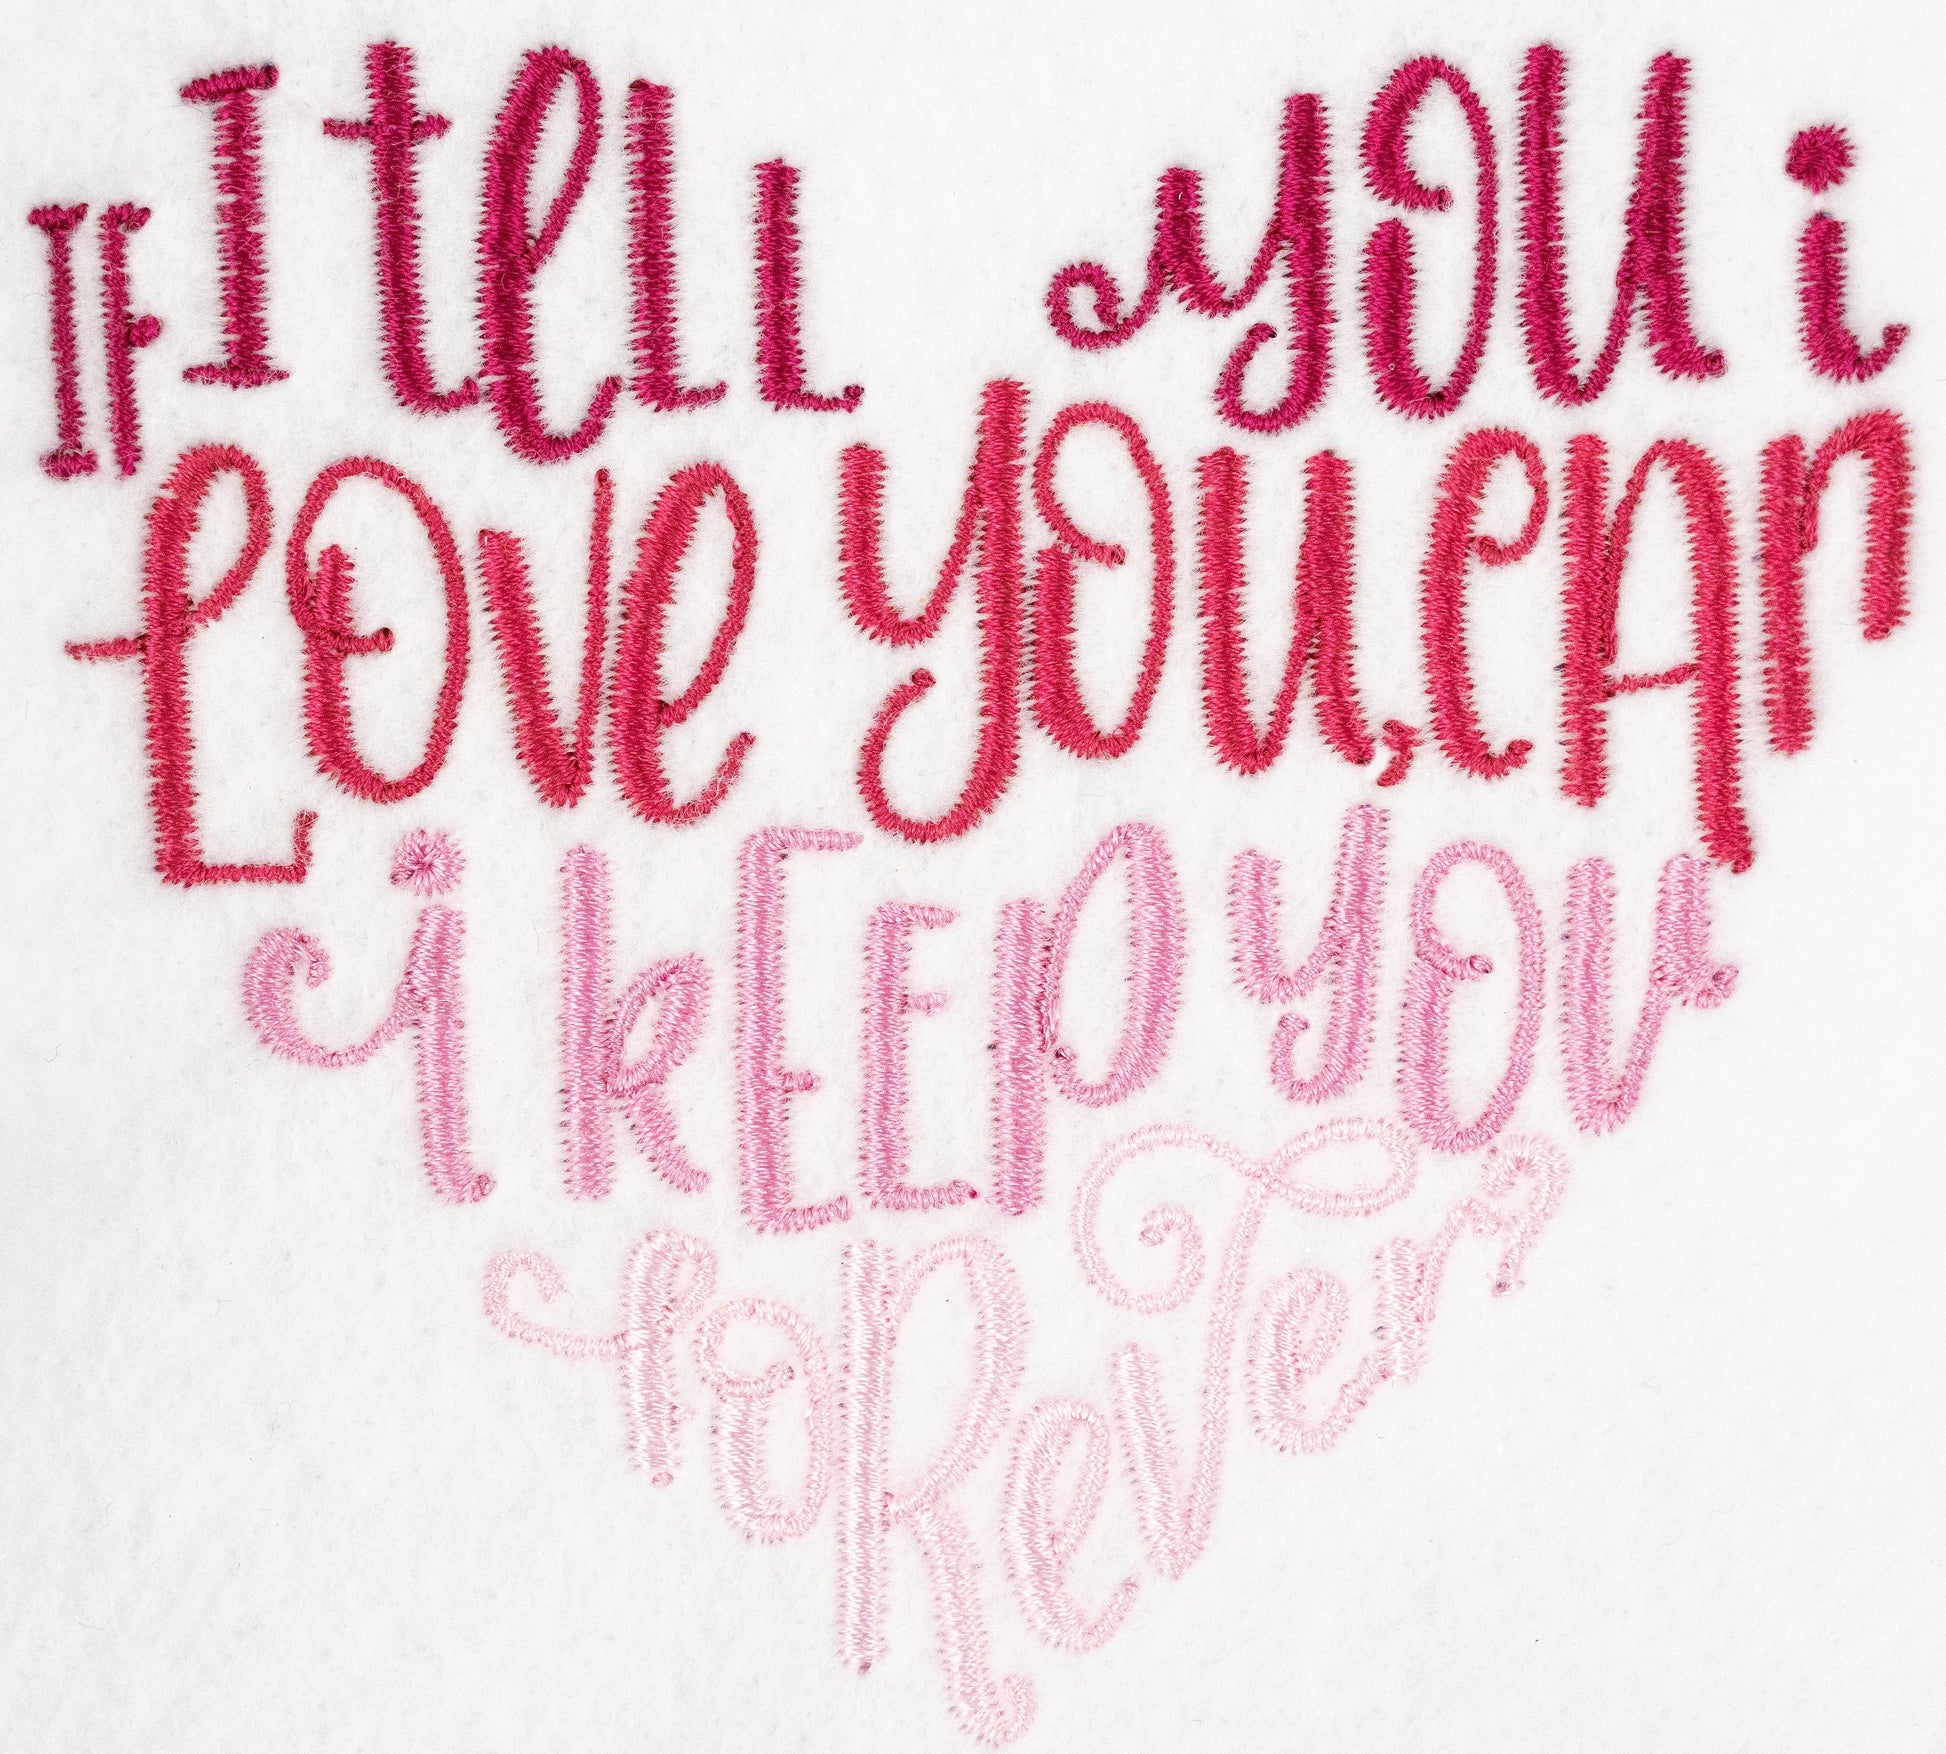 IF I tell you i
Love you, can
i keep you
foReVer